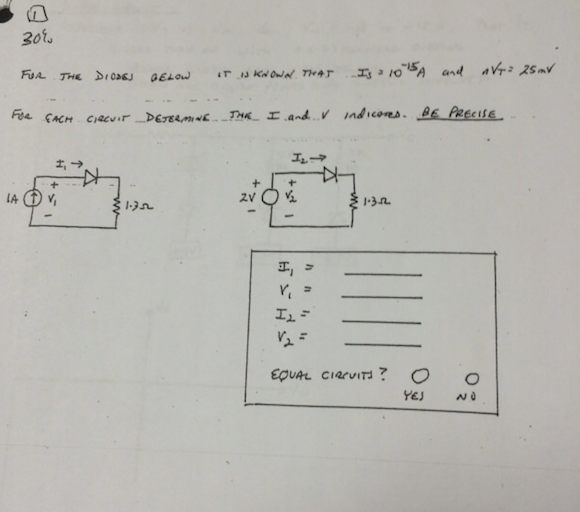 1
30%
FOR THE DIODES BELOW IT IS KNOWN THAT IS = 10^-15 A and nVT = 25mV
FOR EACH CIRCUIT DETERMINE THE I and V indicated. BE PRECISE.
I1 →
1A + V1 - 1.3Ω
I2 →
2V + - + V2 - 1.3Ω
I1 =
V1 =
I2 =
V2 =
EQUAL CIRCUITS?
YES NO